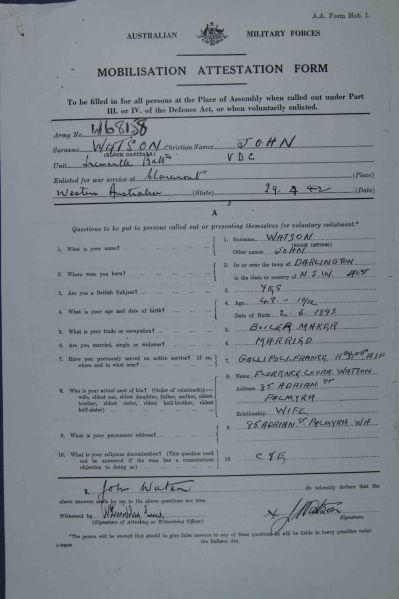 A.A. Form Mob. 1.
AUSTRALIAN MILITARY FORCES
MOBILISATION ATTESTATION FORM
To be filled in for all persons at the Place of Assembly when called out under Part
III. or IV. of the Defence Act, or when voluntarily enlisted.
Army No.
Surname WATSON Christian Names JOHN
(BLOCK CAPITALS)
Unit Fremantle Battn V D C
Enlisted for war service at Claremont (Place)
Western Australia (State) 29 4 42 (Date)
A
Questions to be put to persons called out or presenting themselves for voluntary enlistment.*
1. What is your name? 1. Surname WATSON
(BLOCK LETTERS)
Other names JOHN
2. Where were you born? 2. In or near the town of DARLINGTON
in the state or country of N.S.W. AUST
3. Are you a British Subject? 3. YES
4. What is your age and date of birth? 4. Age 48 - 10/12
Date of Birth 2. 6. 1893
5. What is your trade or occupation? 5. BOILER MAKER
6. Are you married, single or widower? 6. MARRIED
7. Have you previously served on active service? If so, where and in what arm? 7. GALLIPOLI. FRANCE. AIF
8. Who is your actual next of kin? (Order of relationship—
wife, eldest son, eldest daughter, father, mother, eldest
brother, eldest sister, eldest half-brother, eldest
half-sister)
8. Name FLORENCE LOUISA WATSON
Address 85 ADRIAN ST
PALMYRA
Relationship WIFE
9. What is your permanent address? 9. 85 ADRIAN ST PALMYRA WA
10. What is your religious denomination? (This question need
not be answered if the man has a conscientious
objection to doing so)
10. C of E
I, John Watson do solemnly declare that the
above answers made by me to the above questions are true.
Witnessed by J Watson
(Signature of Attesting or Witnessing Officer) Signature.
*The person will be warned that should he give false answers to any of these questions he will be liable to heavy penalties under
the Defence Act.